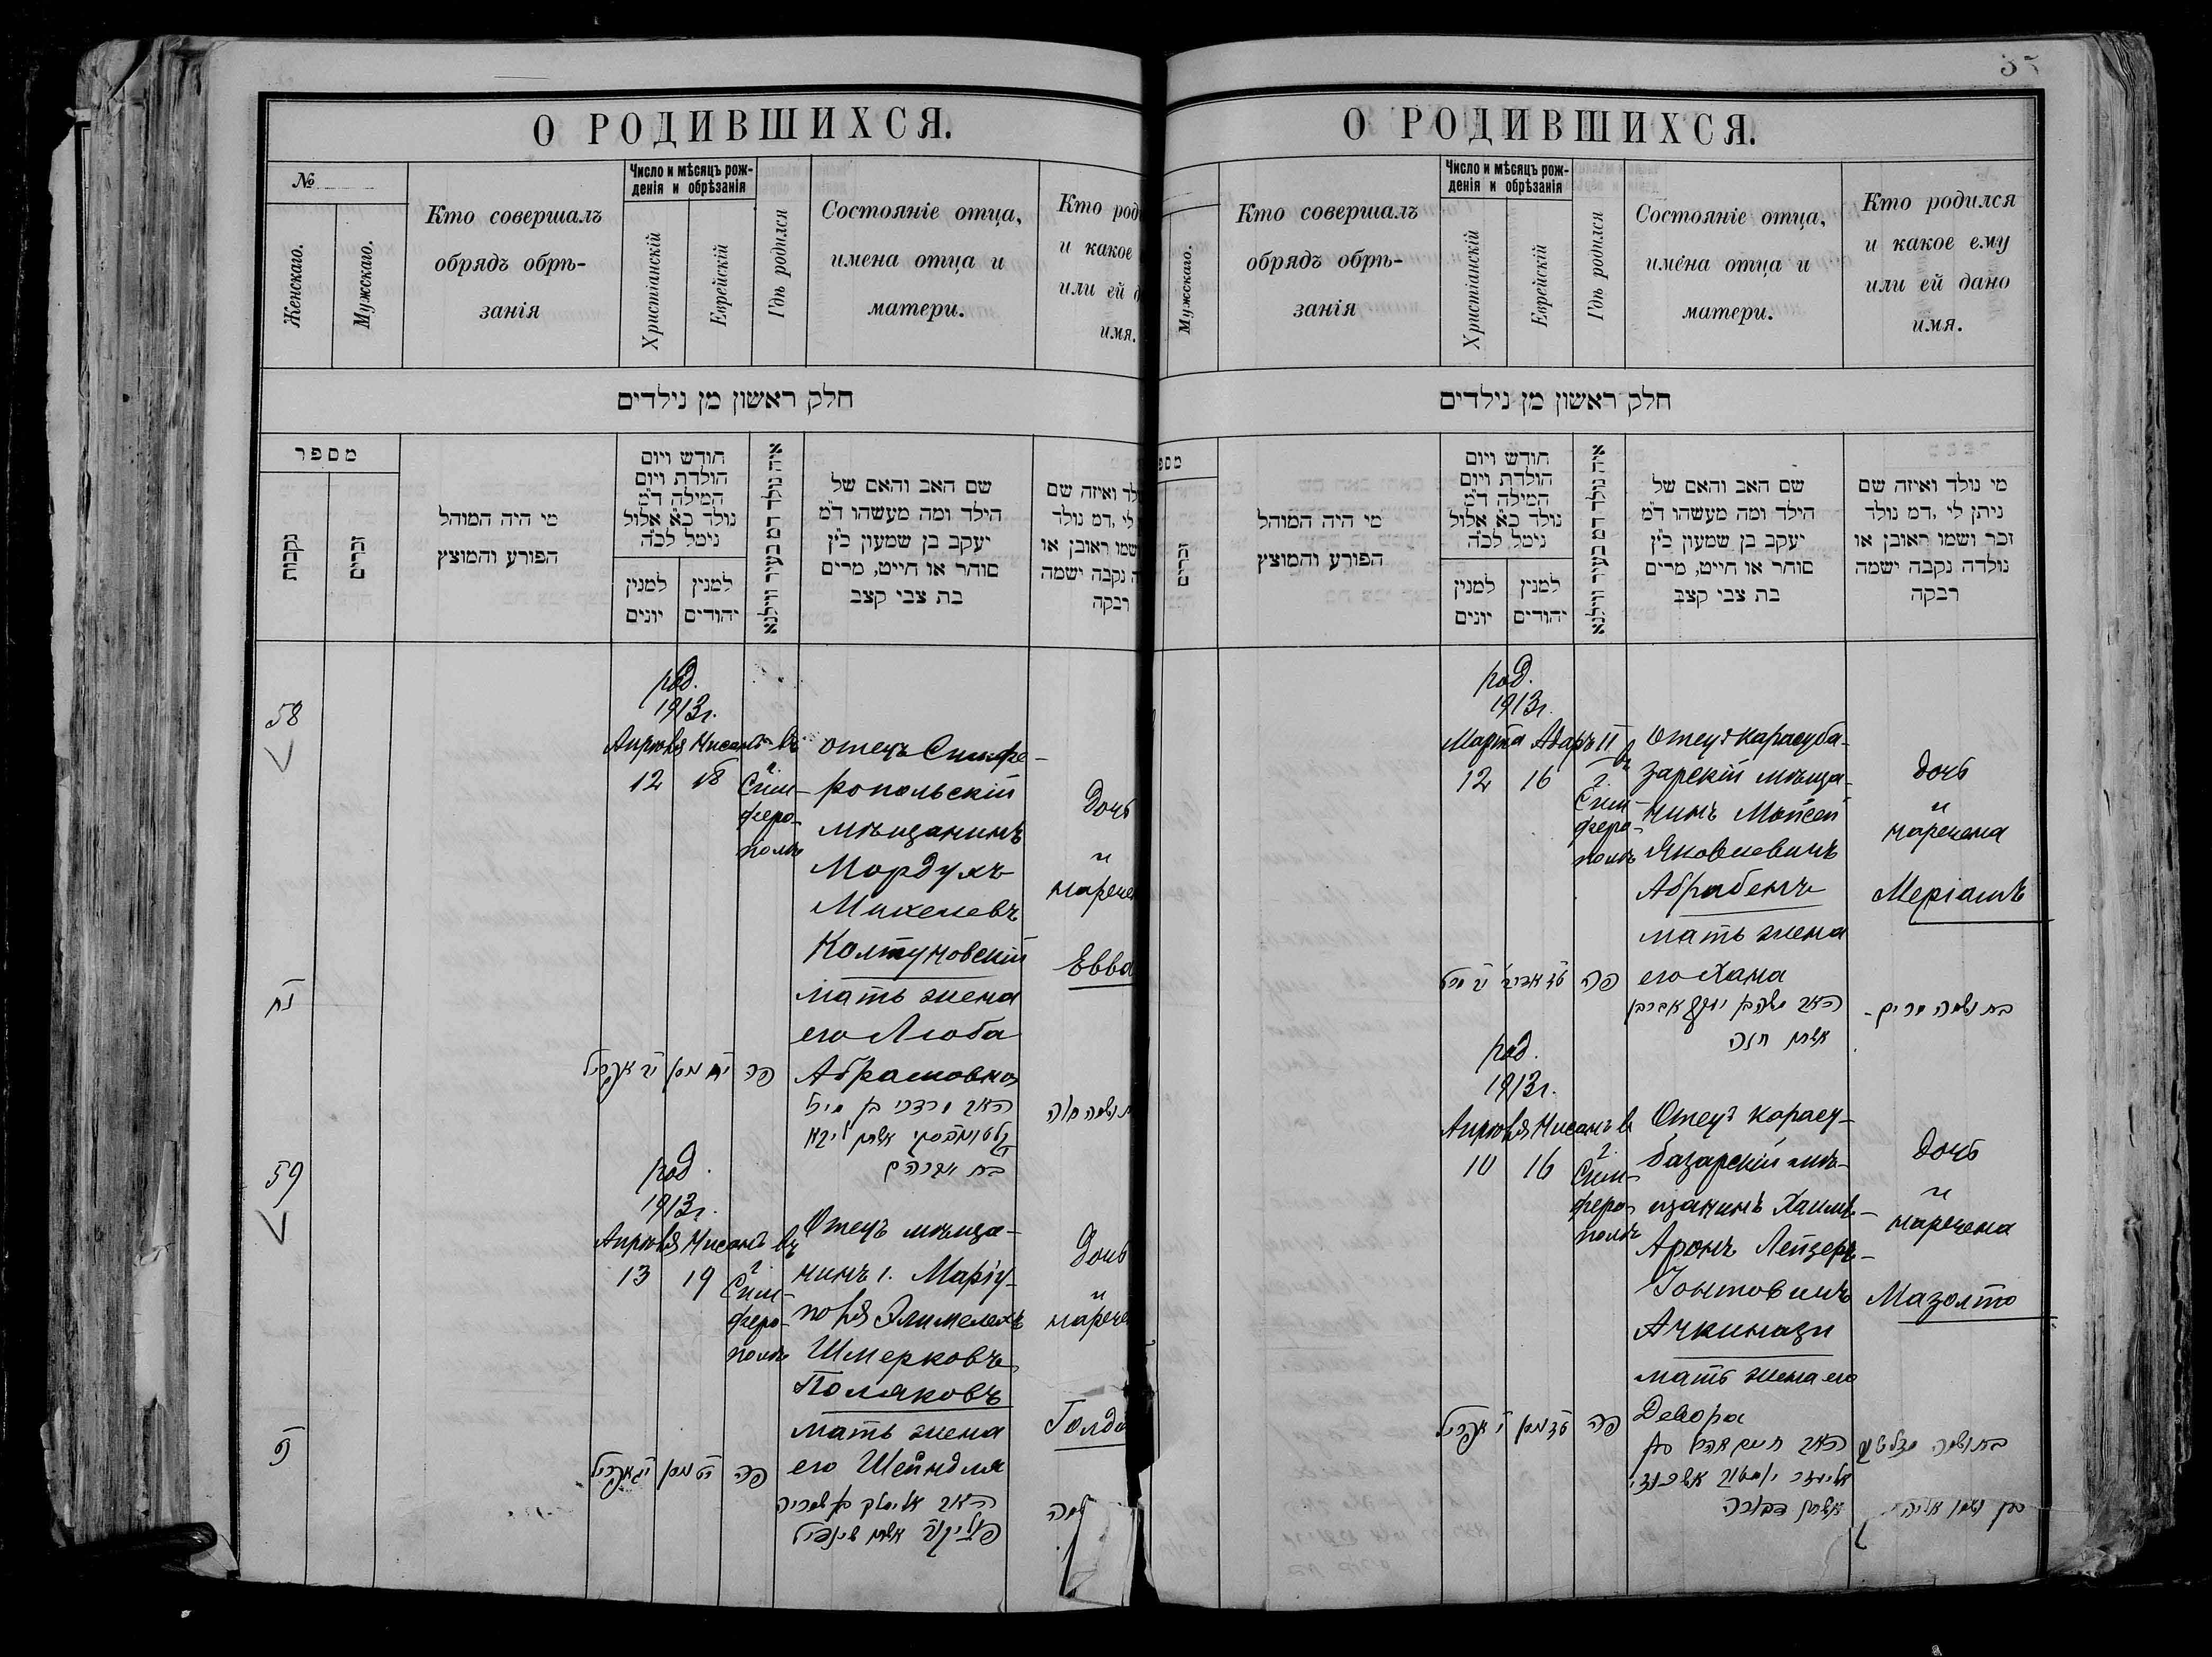 О РОДИВШИХСЯ.
№
Женскаго.
Мужскаго.
Кто совершалъ
обрядъ обрѣ-
занія
Число и мѣсяцъ рож-
денія и обрѣзанія
Христіанскій
Еврейскій
Гдѣ родился
Состояніе отца,
имена отца и
матери.
Кто род
и какое
или ей д
имя.
חלק ראשון מן נילדים
מספר
נקבות
זכרים
מי היה המוהל
הפורע והמוצץ
חודש ויום
הולדת ויום
המילה ד״מ
נולד כ״א אלול
נימל לכ״ה
למנין
יונים
למנין
יהודים
איה נולד דמ בעיר ווילנא
שם האב והאם של
הילד ומה מעשהו ד״מ
יעקב בן שמעון כ״ץ
סוחר או חייט, מרים
בת צבי קצב
לד ואיזה שם
לי ,דמ נולד
שמו ראובן או
ה נקבה ישמה
רבקה
58
род.
1913г.
Апрѣля Нисанъ въ
12 18 г.
Сим-
феро-
полѣ
отецъ Симфе-
ропольскій
мѣщанинъ
Мордухъ
Михелевъ
Колтуновскій
мать жена
его Люба
Абрамовна
Дочь
и
нарече
Евва
נח
פה
59
род.
1913г.
Апрѣля Нисанъ въ
13 19 г.
Сим-
феро-
полѣ
Отецъ мѣща-
нинъ г. Маріу-
поля Элимелехъ
Шмерковъ
Поляковъ
мать жена
его Шейндля
Дочь
и
нарече
Голда
פה
37
О РОДИВШИХСЯ.
Мужскаго.
Кто совершалъ
обрядъ обрѣ-
занія
Число и мѣсяцъ рож-
денія и обрѣзанія
Христіанскій
Еврейскій
Гдѣ родился
Состояніе отца,
имена отца и
матери.
Кто родился
и какое ему
или ей дано
имя.
חלק ראשון מן נילדים
מספ
זכרים
מי היה המוהל
הפורע והמוצץ
חודש ויום
הולדת ויום
המילה ד״מ
נולד כ״א אלול
נימל לכ״ה
למנין
יונים
למנין
יהודים
איה נולד דמ בעיר ווילנא
שם האב והאם של
הילד ומה מעשהו ד״מ
יעקב בן שמעון כ״ץ
סוחר או חייט, מרים
בת צבי קצב
מי נולד ואיזה שם
ניתן לי ,דמ נולד
זכר ושמו ראובן או
נולדה נקבה ישמה
רבקה
род.
1913г.
Марта Адаръ II въ
12 16 г.
Сим-
феро-
полѣ
Отецъ карасуба-
зарскій мѣща-
нинъ Мойсей
Яковлевичъ
Абрабенъ
мать жена
его Хана
дочь
и
наречена
Меріамъ
פה
בת ושמה מרים
אשתו חנה
род.
1913г.
Апрѣля Нисанъ въ
10 16 г.
Сим-
феро-
полѣ
Отецъ карасу-
базарскій мѣ-
щанинъ Хаимъ-
Аронъ Лейзеръ-
Іонтовичъ
Ачкинази
мать жена его
Девора
дочь
и
наречена
Мазолто
פה
אשתו דבורה